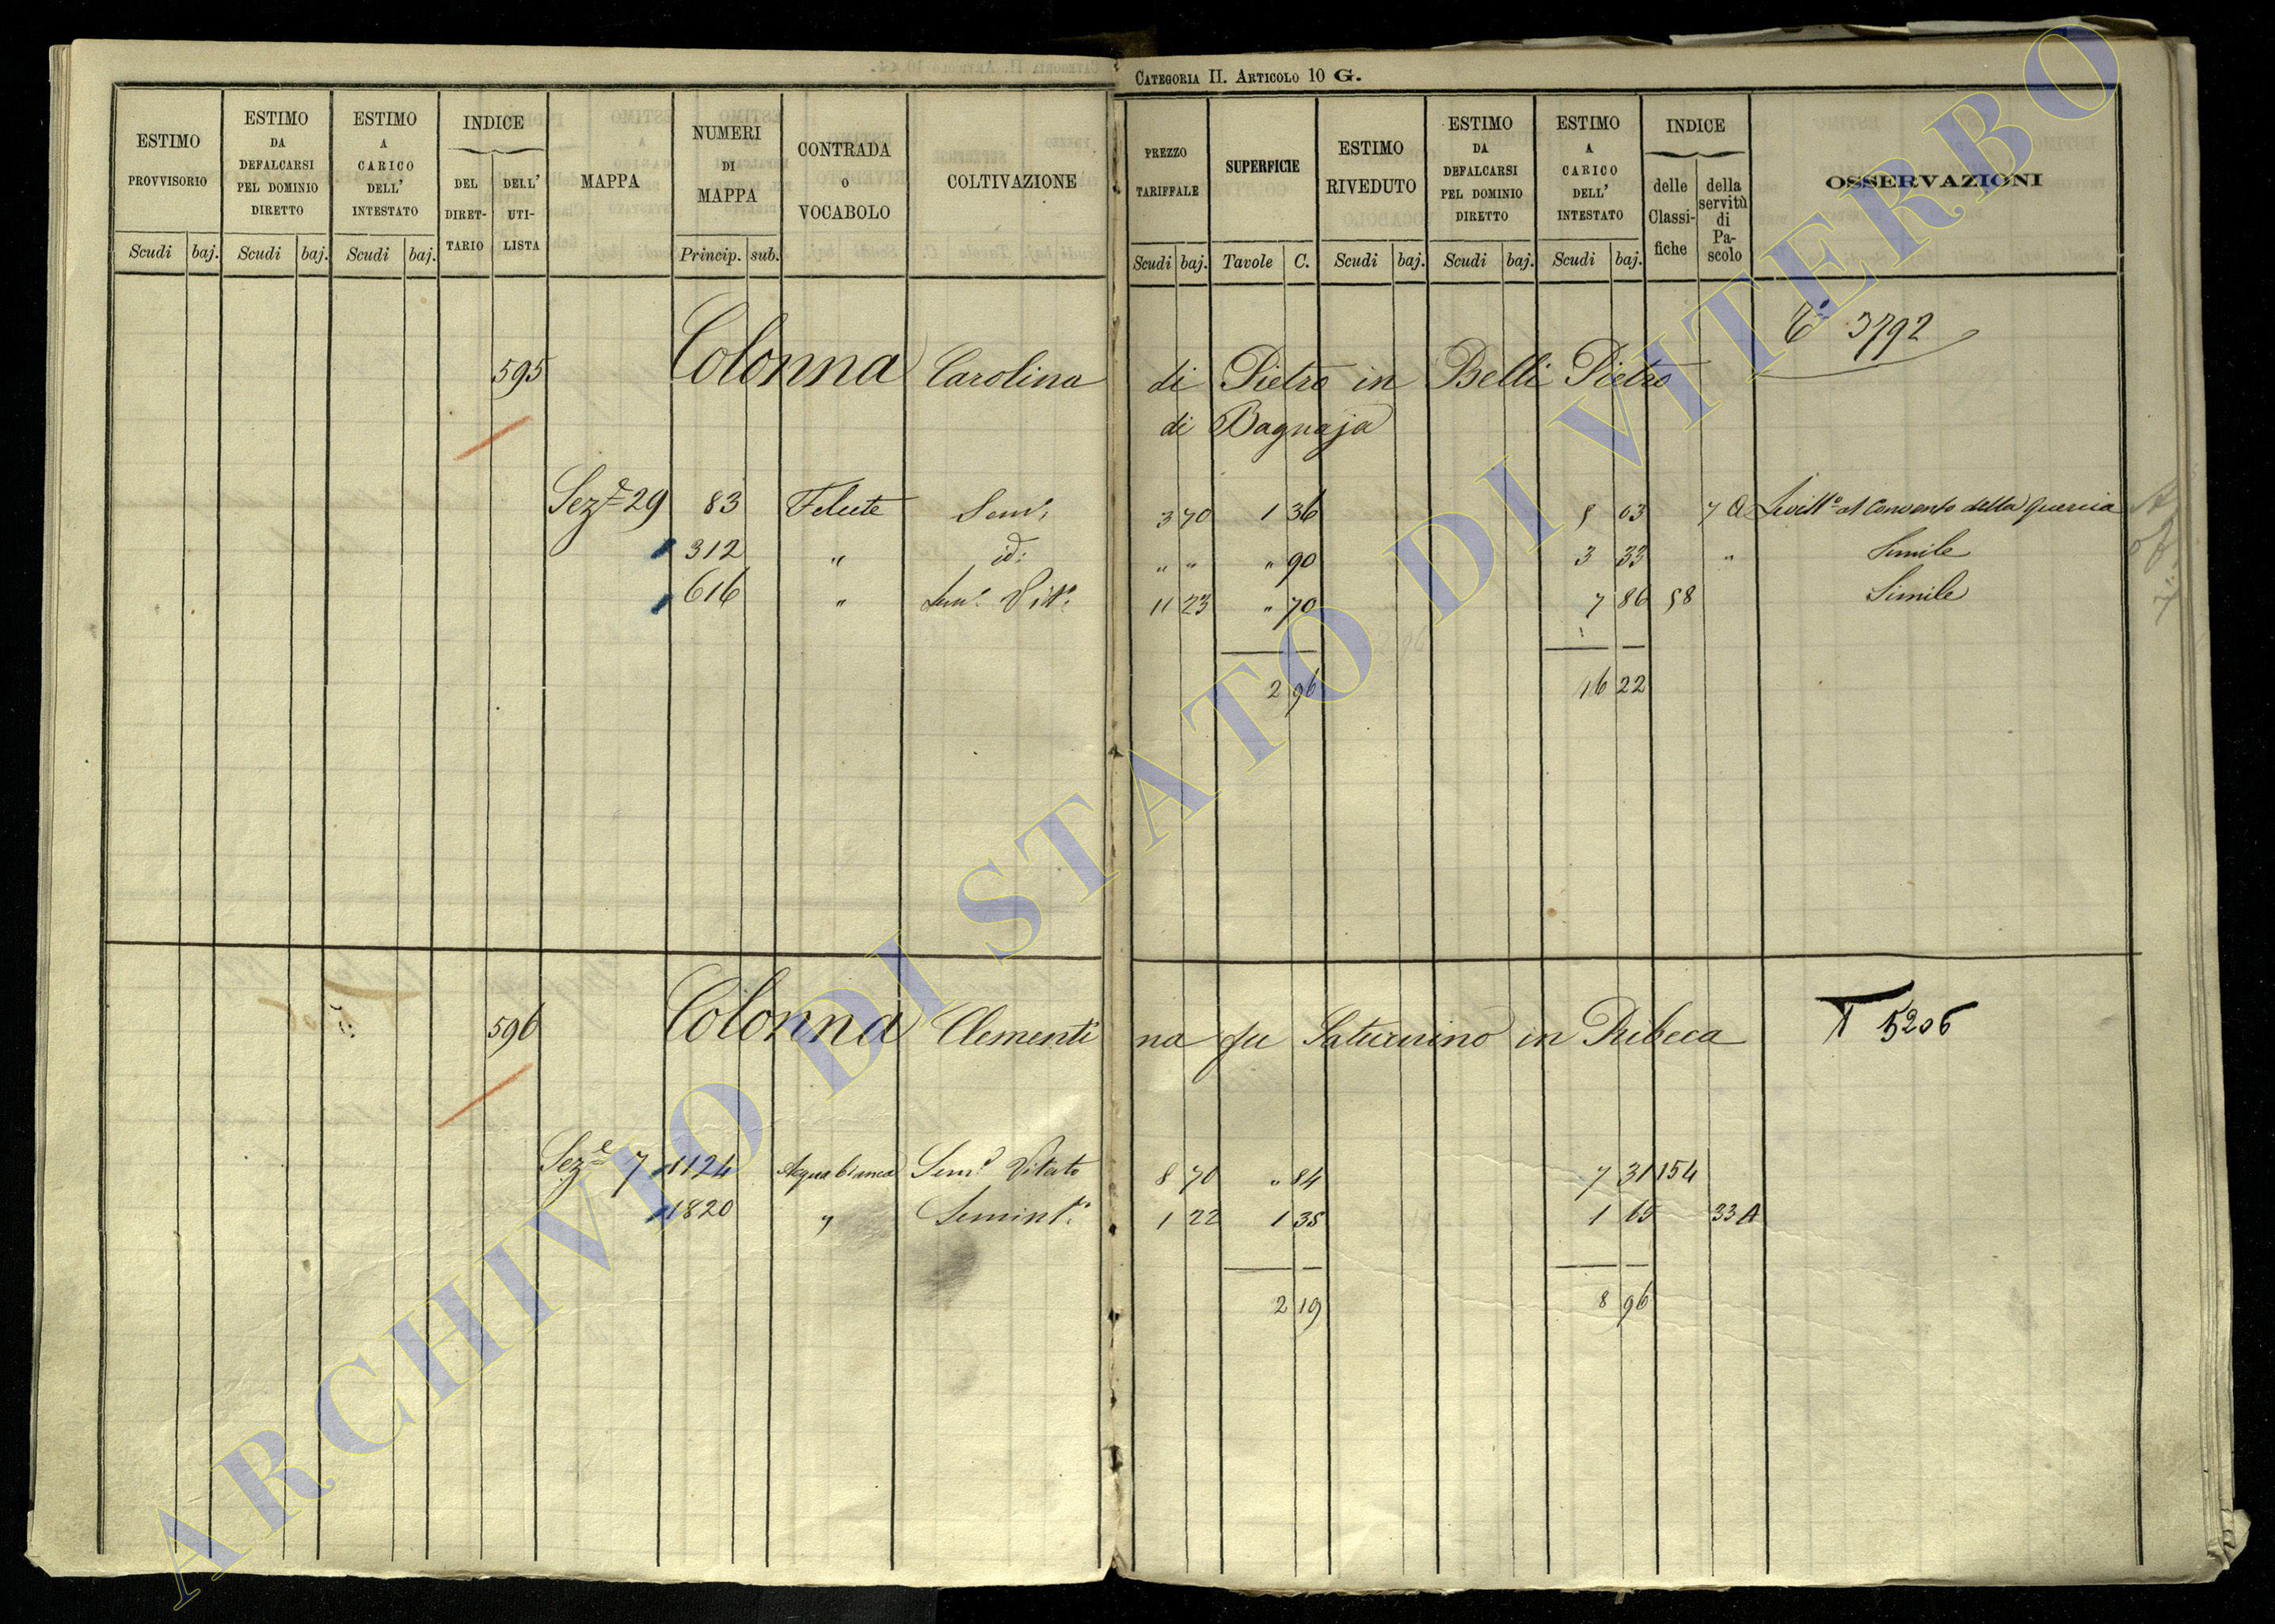 CATEGORIA II. ARTICOLO 10 G.
ESTIMO PROVVISORIO Scudi baj.
ESTIMO DA DEFALCARSI PEL DOMINIO DIRETTO Scudi baj.
ESTIMO A CARICO DELL' INTESTATO Scudi baj.
INDICE DEL DIRETTARIO DELL' UTILISTA
MAPPA
NUMERI DI MAPPA Princip. sub.
CONTRADA O VOCABOLO
COLTIVAZIONE
PREZZO TARIFFALE Scudi baj.
SUPERFICIE Tavole C.
ESTIMO RIVEDUTO Scudi baj.
ESTIMO DA DEFALCARSI PEL DOMINIO DIRETTO Scudi baj.
ESTIMO A CARICO DELL' INTESTATO Scudi baj.
INDICE delle Classifiche della servitù di Pascolo
OSSERVAZIONI
3792
595 Colonna Carolina di Pietro in Belli Pietro
di Bagnaja
Sez.e 29 83 Felcete Sem.o 3 70 1 36 5 03 7 A Livell.o al Convento della Quercia
312 " id: " " " 90 3 33 " Simile
616 " Sem.o Vit.o 11 23 " 70 7 86 58 Simile
2 96 16 22
596 Colonna Clementina fu Saturnino in Ribeca T 5206
Sez.e 7 1124 Acquabianca Sem.o Vitato 8 70 " 84 7 31 154
1820 " Semint.o 1 22 1 35 1 65 33 A
2 19 8 96
ARCHIVIO DI STATO DI VITERBO